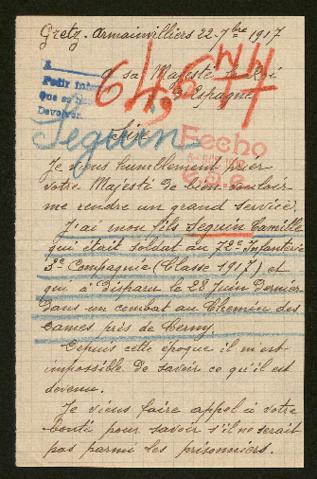 Gretz-Armainvilliers 22-7bre 1917
à sa Majesté le Roi
d'Espagne
Pedir infor
Devolver
Seguin
Sire
Fecho
Je viens humblement prier
votre Majesté de bien vouloir
me rendre un grand service.
J'ai mon fils Seguin Camille
qui était soldat au 72e Infanterie
5e Compagnie (Classe 1917) et
qui à Disparu le 28 Juin Dernier
Dans un combat au Chemin des
Dames près de Cerny.
Depuis cette époque il m'est
impossible de savoir ce qu'il est
devenu.
Je viens faire appel à votre
bonté pour savoir s'il ne serait
pas parmi les prisonniers.